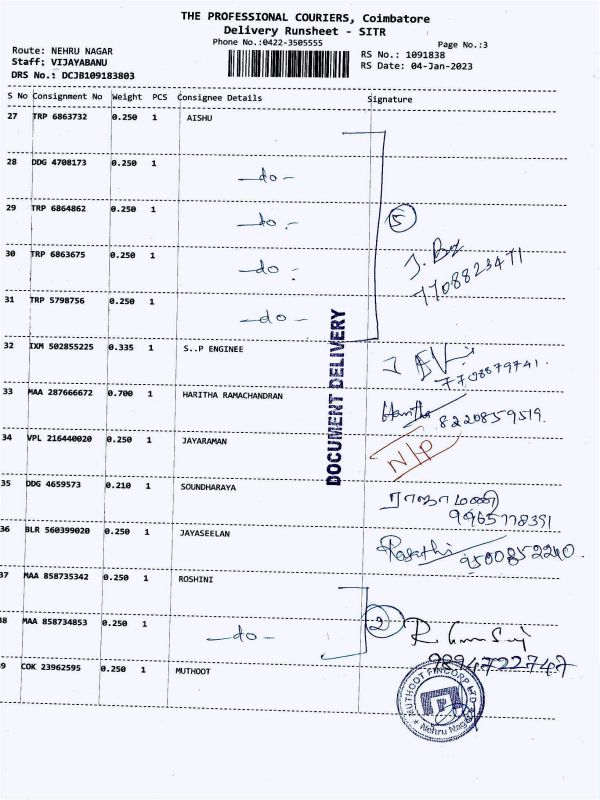 THE PROFESSIONAL COURIERS, Coimbatore
Delivery Runsheet - SITR
Phone No.:0422-3505555
Page No.:3
Route: NEHRU NAGAR
Staff: VIJAYABANU
DRS No.: DCJB109183803
RS No.: 1091838
RS Date: 04-Jan-2023
S No Consignment No Weight PCS Consignee Details Signature
27 TRP 6863732 0.250 1 AISHU
28 DDG 4708173 0.250 1 -do-
29 TRP 6864862 0.250 1 -do-
5
30 TRP 6863675 0.250 1 -do-
7708823471
31 TRP 5798756 0.250 1 -do-
DOCUMENT DELIVERY
32 IXM 502855225 0.335 1 S..P ENGINEE
7708879741.
33 MAA 287666672 0.700 1 HARITHA RAMACHANDRAN
Haritha 8220859519.
34 VPL 216440020 0.250 1 JAYARAMAN
N/P
35 DDG 4659573 0.210 1 SOUNDHARAYA
ராஜாமணி
9965778391
36 BLR 560399020 0.250 1 JAYASEELAN
9500852240.
37 MAA 858735342 0.250 1 ROSHINI
38 MAA 858734853 0.250 1 -do-
2
9894722747
39 COK 23962595 0.250 1 MUTHOOT
MUTHOOT FINCORP LTD
Nehru Nagar